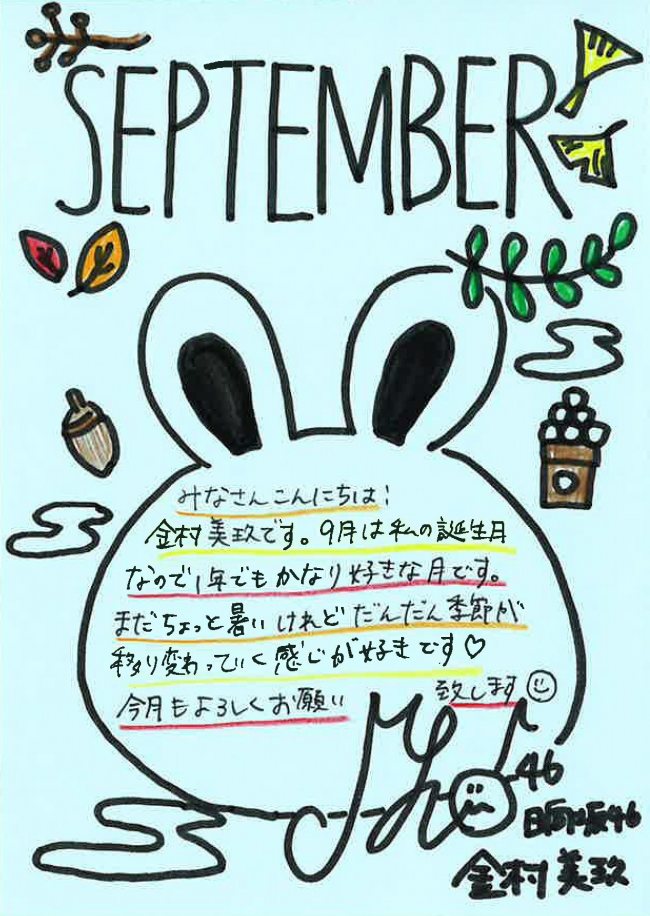 SEPTEMBER
みなさんこんにちは!
金村美玖です。9月は私の誕生月
なので1年でもかなり好きな月です。
まだちょっと暑いけれどだんだん季節が
移り変わっていく感じが好きです♡
今月もよろしくお願い 致します
46
日向坂46
金村美玖